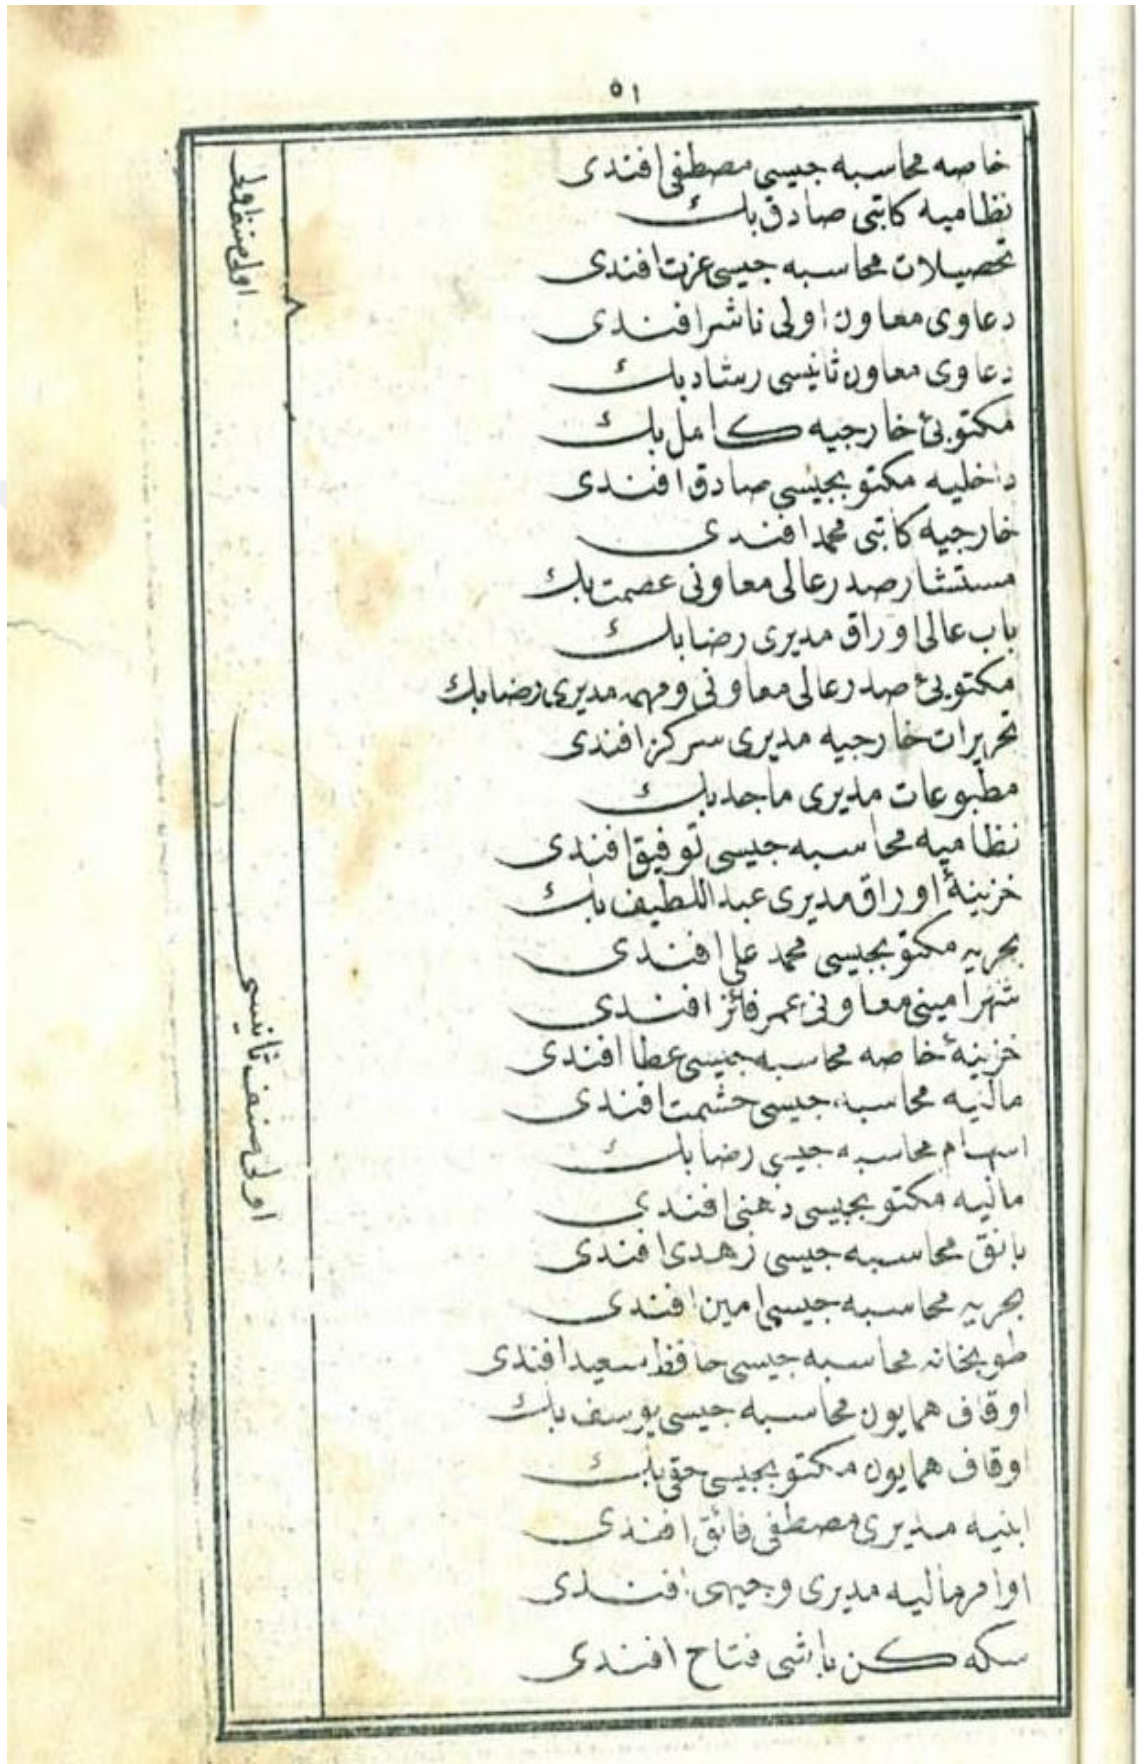 ٥١
خاصه محاسبه جیسی مصطفی افندی
نظامیه کاتبی صادق بك
تحصیلات محاسبه جیسی عزت افندی
دعاوی معاون اولی ناشر افندی
دعاوی معاون ثانیسی رشاد بك
مکتوبیٔ خارجیه کامل بك
داخلیه مکتوبجیسی صادق افندی
خارجیه کاتبی محمد افندی
مستشار صدرعالی معاونی عصمت بك
باب عالی اوراق مدیری رضا بك
مکتوبیٔ صدرعالی معاونی ومهمه مدیری رضا بك
تحریرات خارجیه مدیری سرکز افندی
مطبوعات مدیری ماجد بك
نظامیه محاسبه جیسی توفیق افندی
خزینهٔ اوراق مدیری عبداللطیف بك
بحریه مکتوبجیسی محمد علی افندی
شهر امینی معاونی عمر فائز افندی
خزینهٔ خاصه محاسبه جیسی عطا افندی
مالیه محاسبه جیسی حشمت افندی
اسهام محاسبه جیسی رضا بك
مالیه مکتوبجیسی ذهنی افندی
بانق محاسبه جیسی زهدی افندی
بحریه محاسبه جیسی امین افندی
طوبخانه محاسبه جیسی حافظ سعید افندی
اوقاف همایون محاسبه جیسی یوسف بك
اوقاف همایون مکتوبجیسی حقی بك
ابنیه مدیری مصطفی فائق افندی
اوامر مالیه مدیری وجیهی افندی
سکه کن باشی فتاح افندی
اولی صنف اولی
اولی صنف ثانیسی